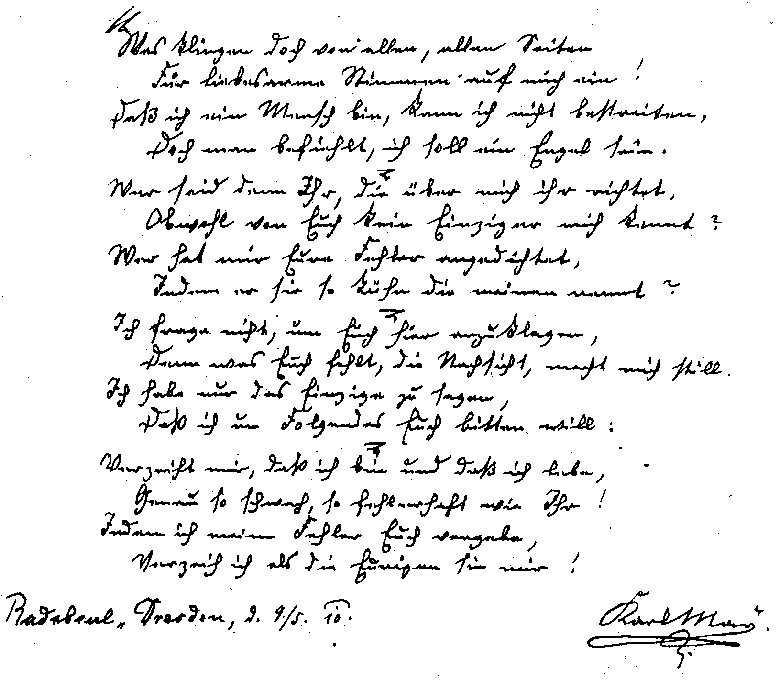 Was klingen doch von allen, allen Seiten
Für liebesarme Stimmen auf mich ein!
Daß ich ein Mensch bin, kann ich nicht bestreiten,
Doch man befiehlt, ich soll ein Engel sein.
Wer seid denn Ihr, die über mich ihr richtet,
Obwohl von Euch kein Einziger mich kennt?
Wer hat mir Eure Fehler angedichtet,
Indem er sie so kühn die meinen nennt?
Ich frage nicht, um Euch hier anzuklagen,
Denn was Euch fehlt, die Nachsicht, macht mich still.
Ich habe nur das Einzige zu sagen,
Daß ich um Folgendes Euch bitten will:
Verzeiht mir, daß ich bin und daß ich lebe,
Genau so schwach, so fehlerhaft wie Ihr!
Indem ich meine Fehler Euch vergebe,
Verzeih ich als die Eurigen sie mir!
Radebeul-Dresden, d. 9/5. 10.
Karl May.